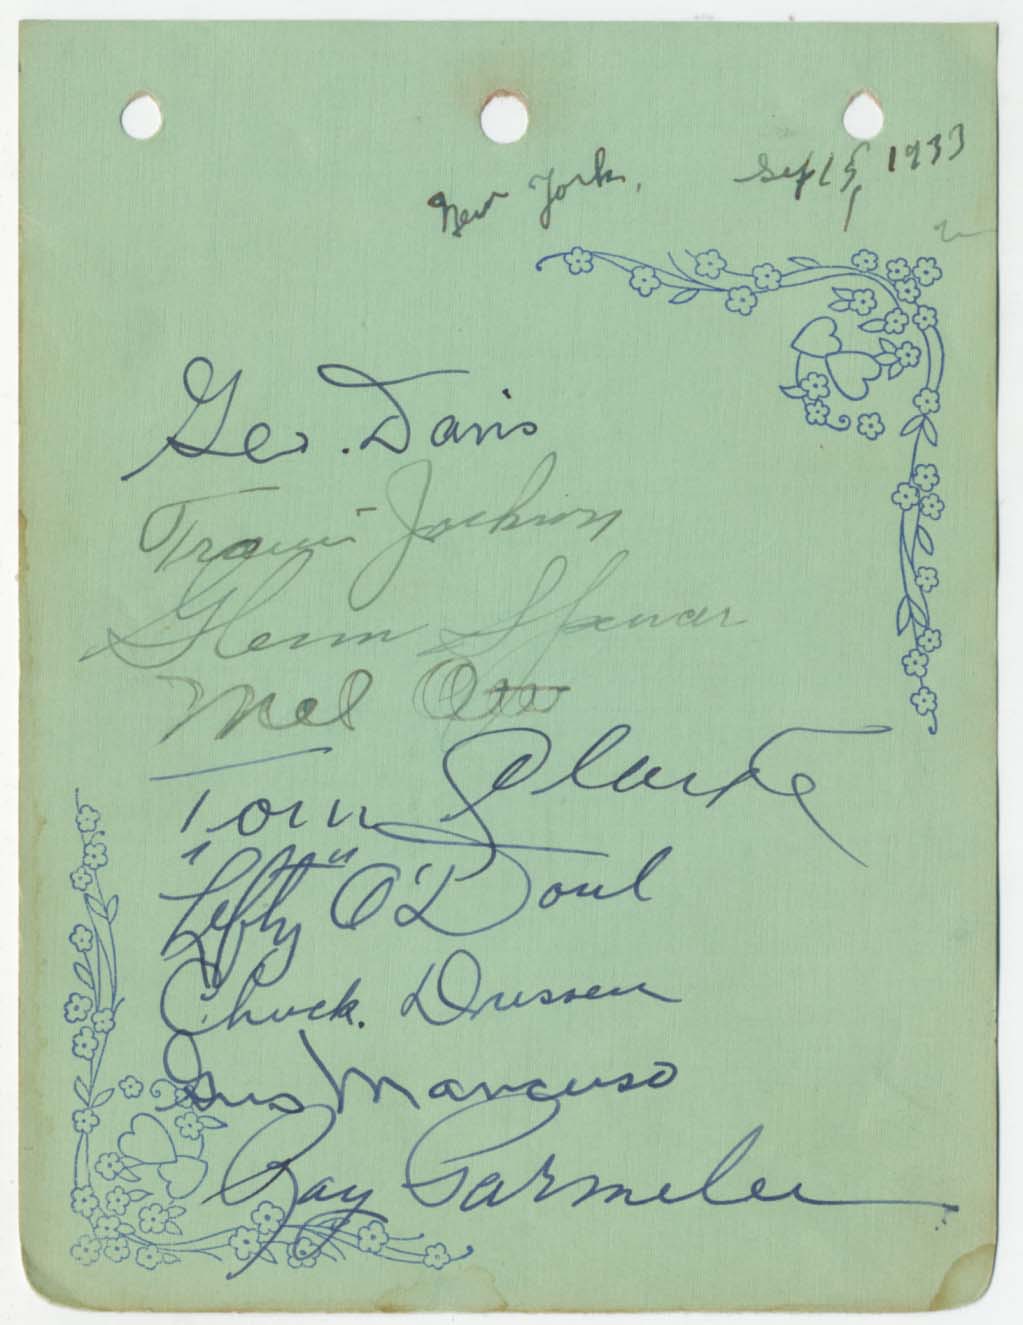 New York, Sept 5, 1933
Geo. Davis
Travis Jackson
Glenn Spencer
Mel Ott
Tom Clarke
"Lefty" O'Doul
Chuck. Dressen
Gus Mancuso
Roy Parmelee